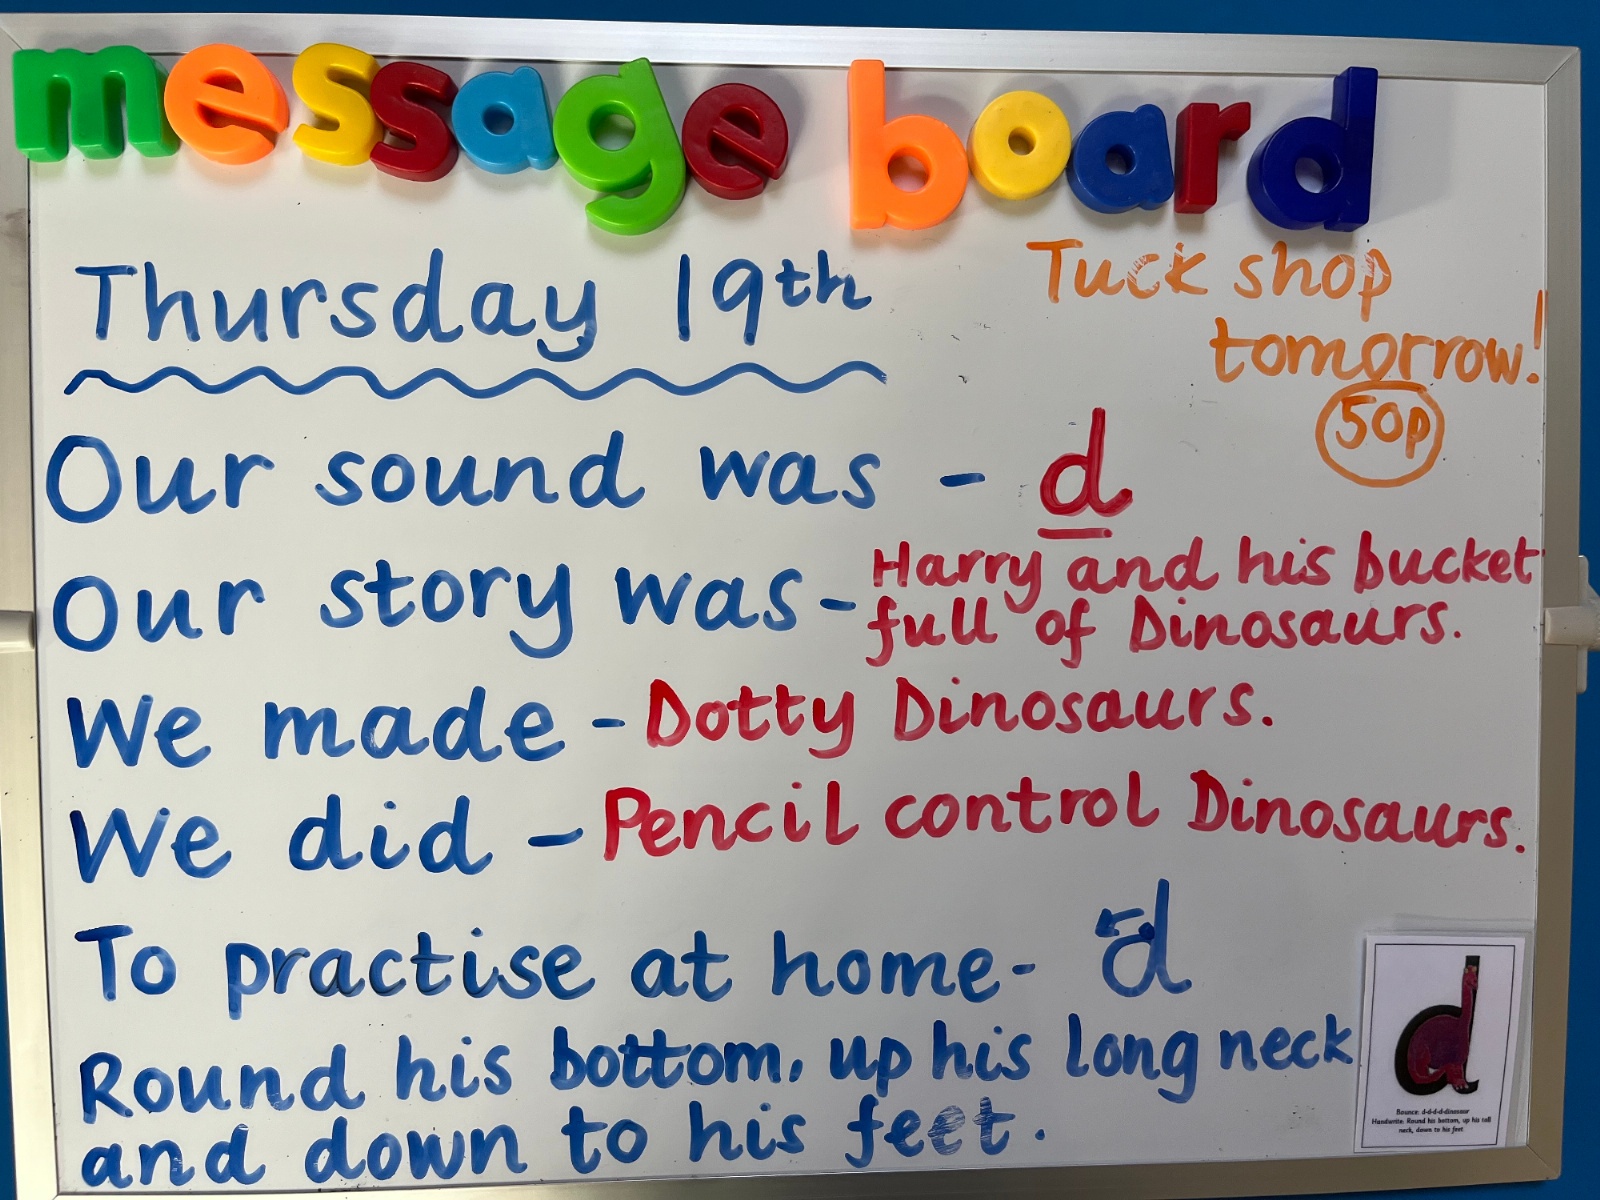 message board
Thursday 19th
Tuck shop
tomorrow!
50p
Our sound was - d
Our story was - Harry and his bucket
full of Dinosaurs.
We made - Dotty Dinosaurs.
We did - Pencil control Dinosaurs.
To practise at home- d
Round his bottom, up his long neck
and down to his feet.
d
Bounce: d-d-d-d-dinosaur
Handwrite: Round his bottom, up his tall
neck, down to his feet